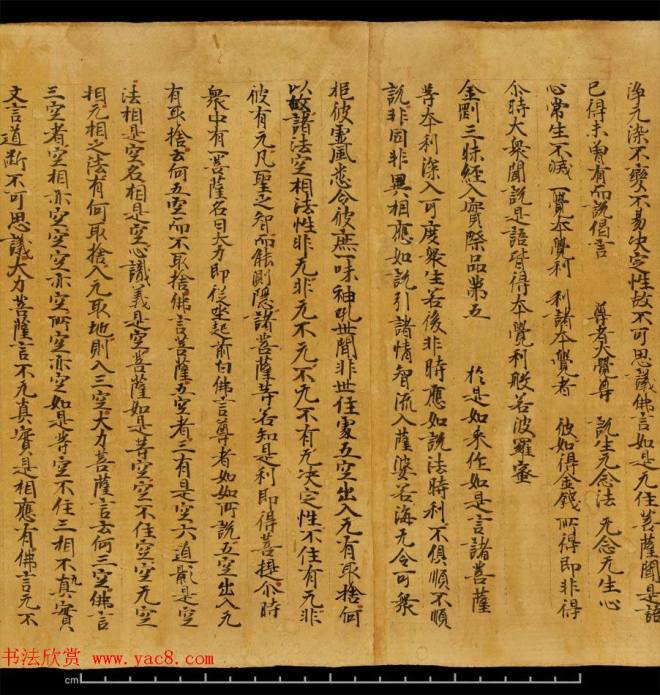 淨无染不變不易决定性故不可思議佛言如是无住菩薩聞是語
已得未曾有而說偈言 尊者大覺尊 說生无念法 无念无生心
心常生不滅 一覺本覺利 利諸本覺者 彼如得金錢 所得即非得
尒時大衆聞說是語皆得本覺利般若波羅蜜
金剛三昧經入實際品第五 於是如來作如是言諸菩薩
等本利深入可度衆生若後非時應如說法時利不俱順不順
說非同非異相應如說引諸情智流入薩婆若海无令可衆
挹彼虛風悉令彼庶一味神乳世間非世住處五空出入无有取捨何
以故諸法空相法性非无非无不无不无不有无决定性不住有无非
彼有无凡聖之智而能測隱諸菩薩等若知是利即得菩提尒時
衆中有一菩薩名曰大力即從坐起前白佛言尊者如如所說五空出入无
有取捨云何五空而不取捨佛言菩薩五空者三有是空六道影是空
法相是空名相是空心識義是空菩薩如是等空空不住空空无空
相无相之法有何取捨入无取地則入三空大力菩薩言云何三空佛言
三空者空相亦空空空亦空所空亦空如是等空不住三相不九真實
文言道斷不可思議大力菩薩言不无真實是相應有佛言无不
书法欣赏 www.yac8.com
cm